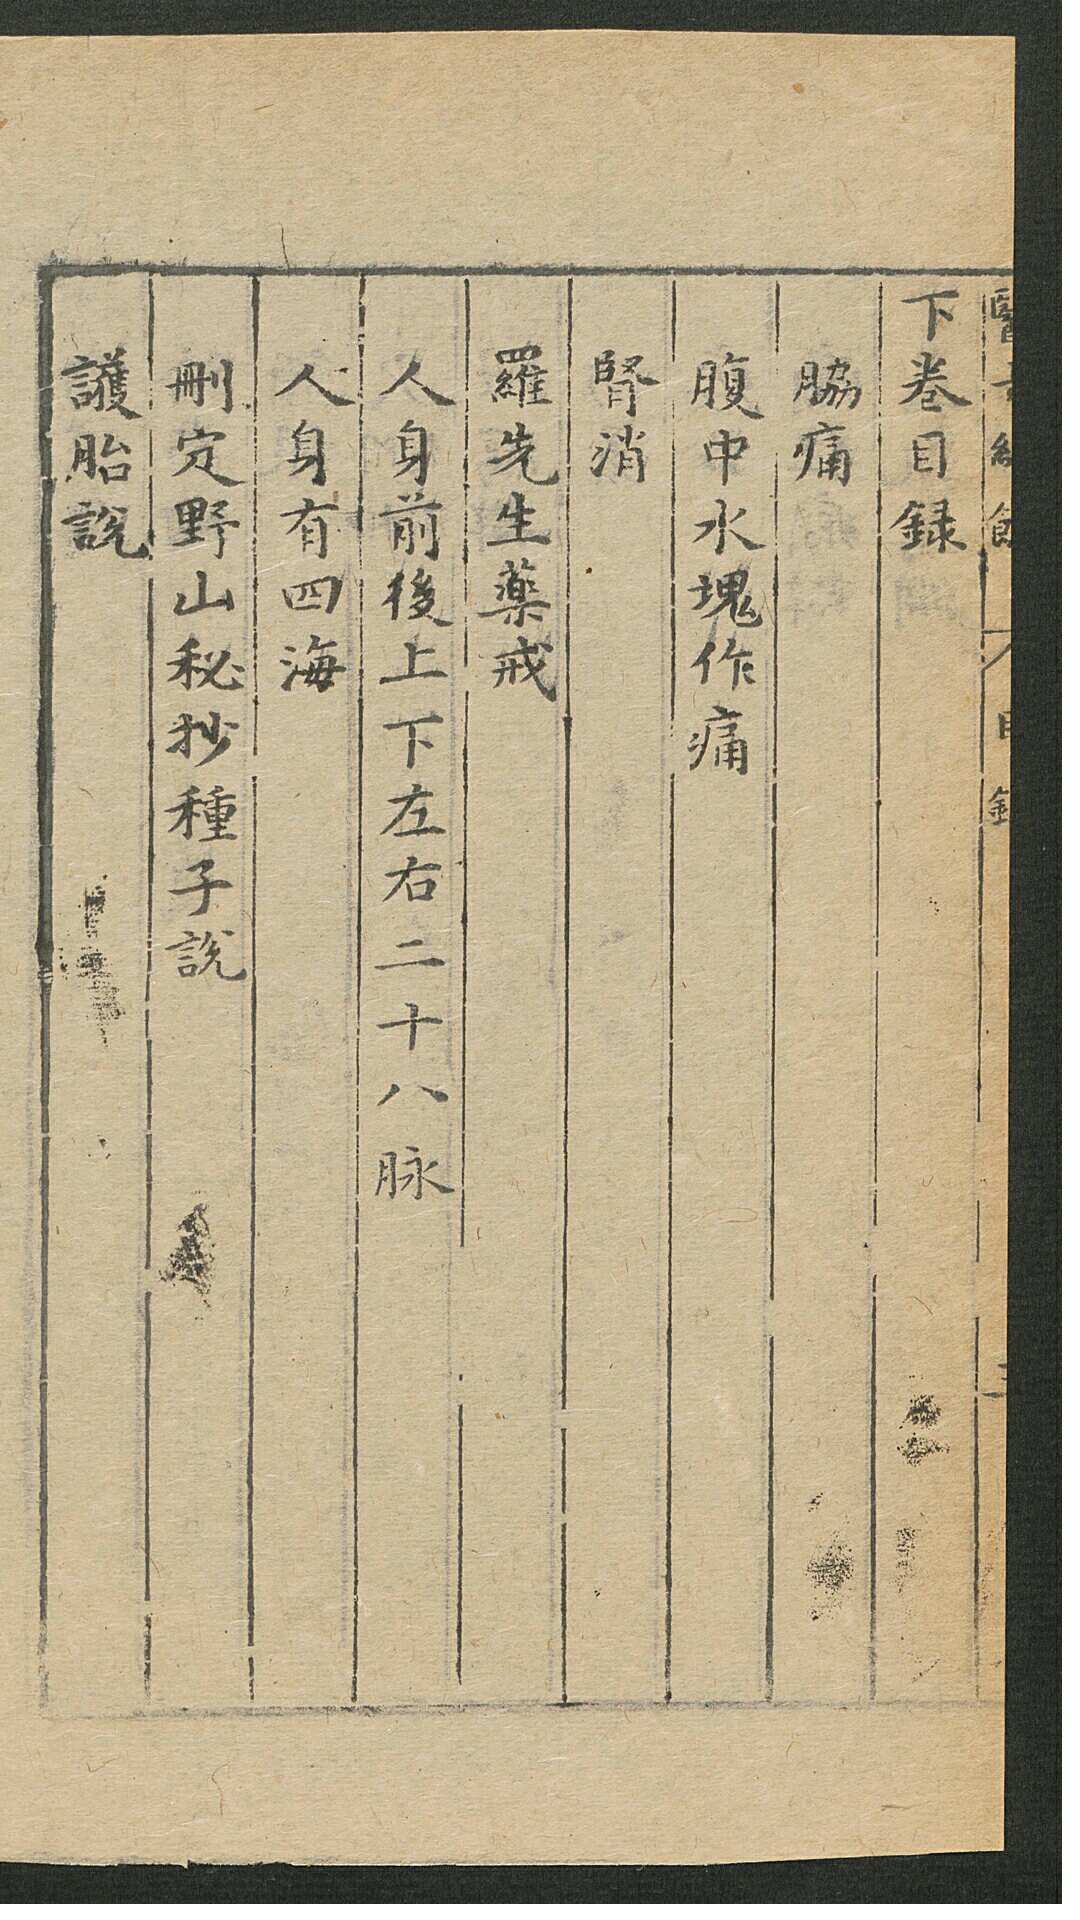 下卷目録
脇痛
腹中水塊作痛
腎消
羅先生藥戒
人身前後上下左右二十八脉
人身有四海
刪定野山秘抄種子說
護胎說